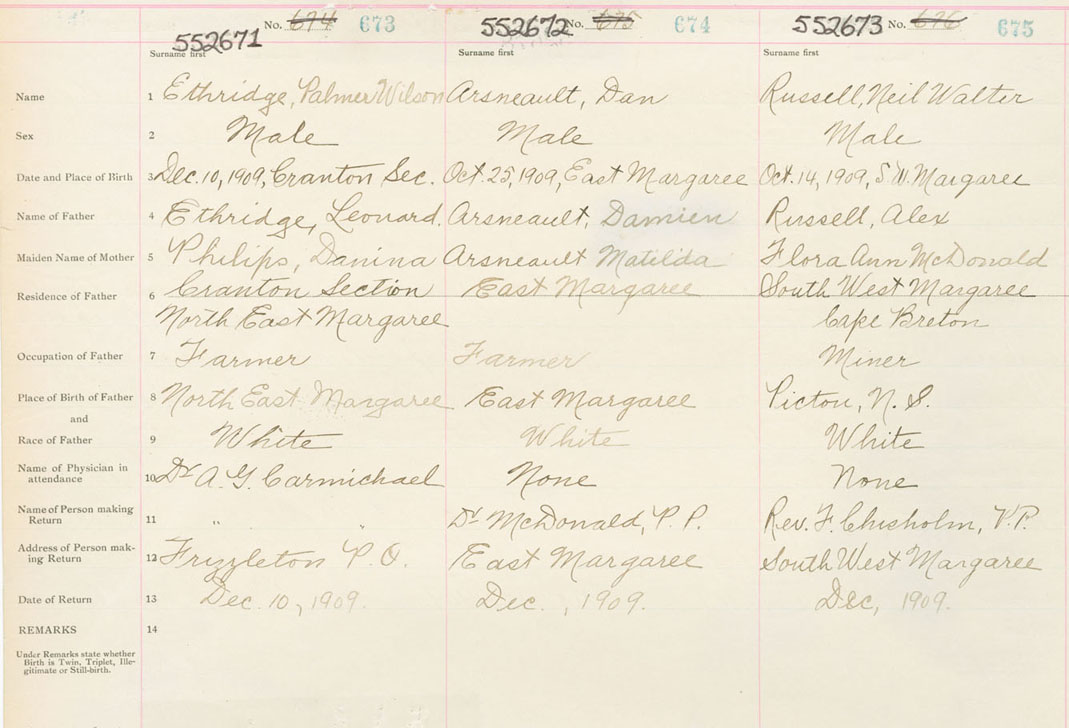 No. 674 673 552672 No. 675 674 552673 No. 676 675
552671
Surname first Surname first Surname first
Name 1 Ethridge, Palmer Wilson Arsneault, Dan Russell, Neil Walter
Sex 2 Male Male Male
Date and Place of Birth 3 Dec. 10, 1909, Cranton Sec. Oct. 25, 1909, East Margaree Oct. 14, 1909, S.W. Margaree
Name of Father 4 Ethridge, Leonard. Arsneault, Damien Russell, Alex
Maiden Name of Mother 5 Philips, Danina Arsneault Matilda Flora Ann McDonald
Residence of Father 6 Cranton Section East Margaree South West Margaree
North East Margaree Cape Breton
Occupation of Father 7 Farmer Farmer Miner
Place of Birth of Father 8 North East Margaree East Margaree Pictou, N. S.
and
Race of Father 9 White White White
Name of Physician in
attendance 10 Dr A. G. Carmichael None None
Name of Person making
Return 11 " " Dr McDonald, P. P. Rev. F. Chisholm, P.P.
Address of Person mak-
ing Return 12 Frizzleton P. O. East Margaree South West Margaree
Date of Return 13 Dec. 10, 1909. Dec. , 1909. Dec, 1909.
REMARKS 14
Under Remarks state whether
Birth is Twin, Triplet, Ille-
gitimate or Still-birth.